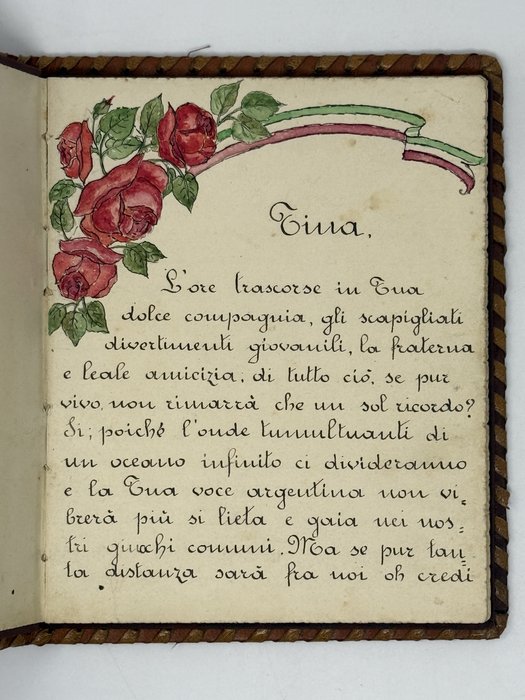 Tina,
L'ore trascorse in Tua
dolce compagnia, gli scapigliati
divertimenti giovanili, la fraterna
e leale amicizia, di tutto ciò, se pur
vivo, non rimarrà che un sol ricordo?
Si; poiché l'onde tumultuanti di
un oceano infinito ci divideranno
e la Tua voce argentina non vi=
brerà più sì lieta e gaia nei nos=
tri giuochi comuni. Ma se pur tan=
ta distanza sarà fra noi oh credi